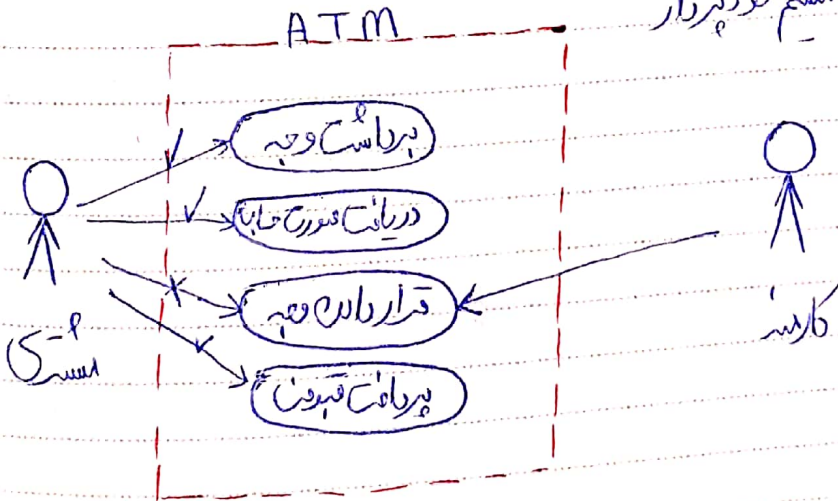 سیستم خودپرداز
ATM
برداشت وجه
دریافت صورت حساب
قرار دادن وجه
پرداخت قبوض
مشتری
کارمند